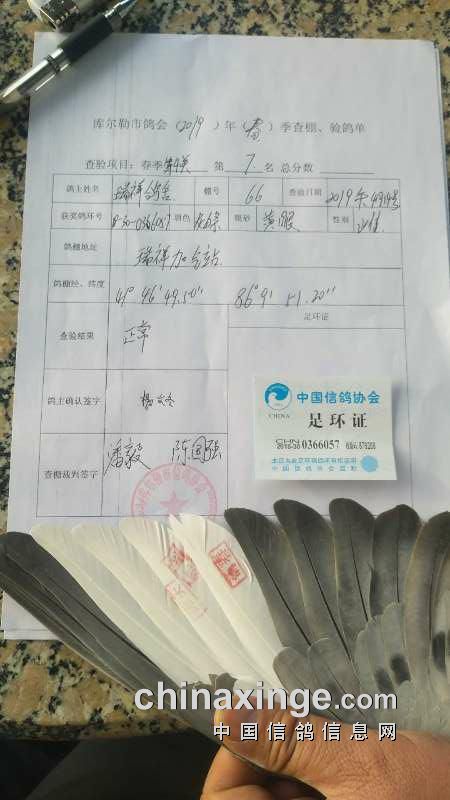 库尔勒市鸽会(2019)年(春)季查棚、验鸽单
查验项目:春季 第 7 名 总分数
鸽主姓名 瑞祥鸽舍 棚号 66 查验日期 2019年4月19号
获奖鸽环号 羽色 眼砂 黄眼 性别 雄
鸽棚地址 瑞祥加气站
鸽棚经、纬度 41° 46′ 49.50″ 86° 9′ 51.20″
查验结果 正常 足环证
鸽主确认签字
查棚裁判签字 潘毅 陈国强
中国信鸽协会
CHINA 足环证
0366057
中国信鸽协会监制
chinaxinge.com
中国信鸽信息网